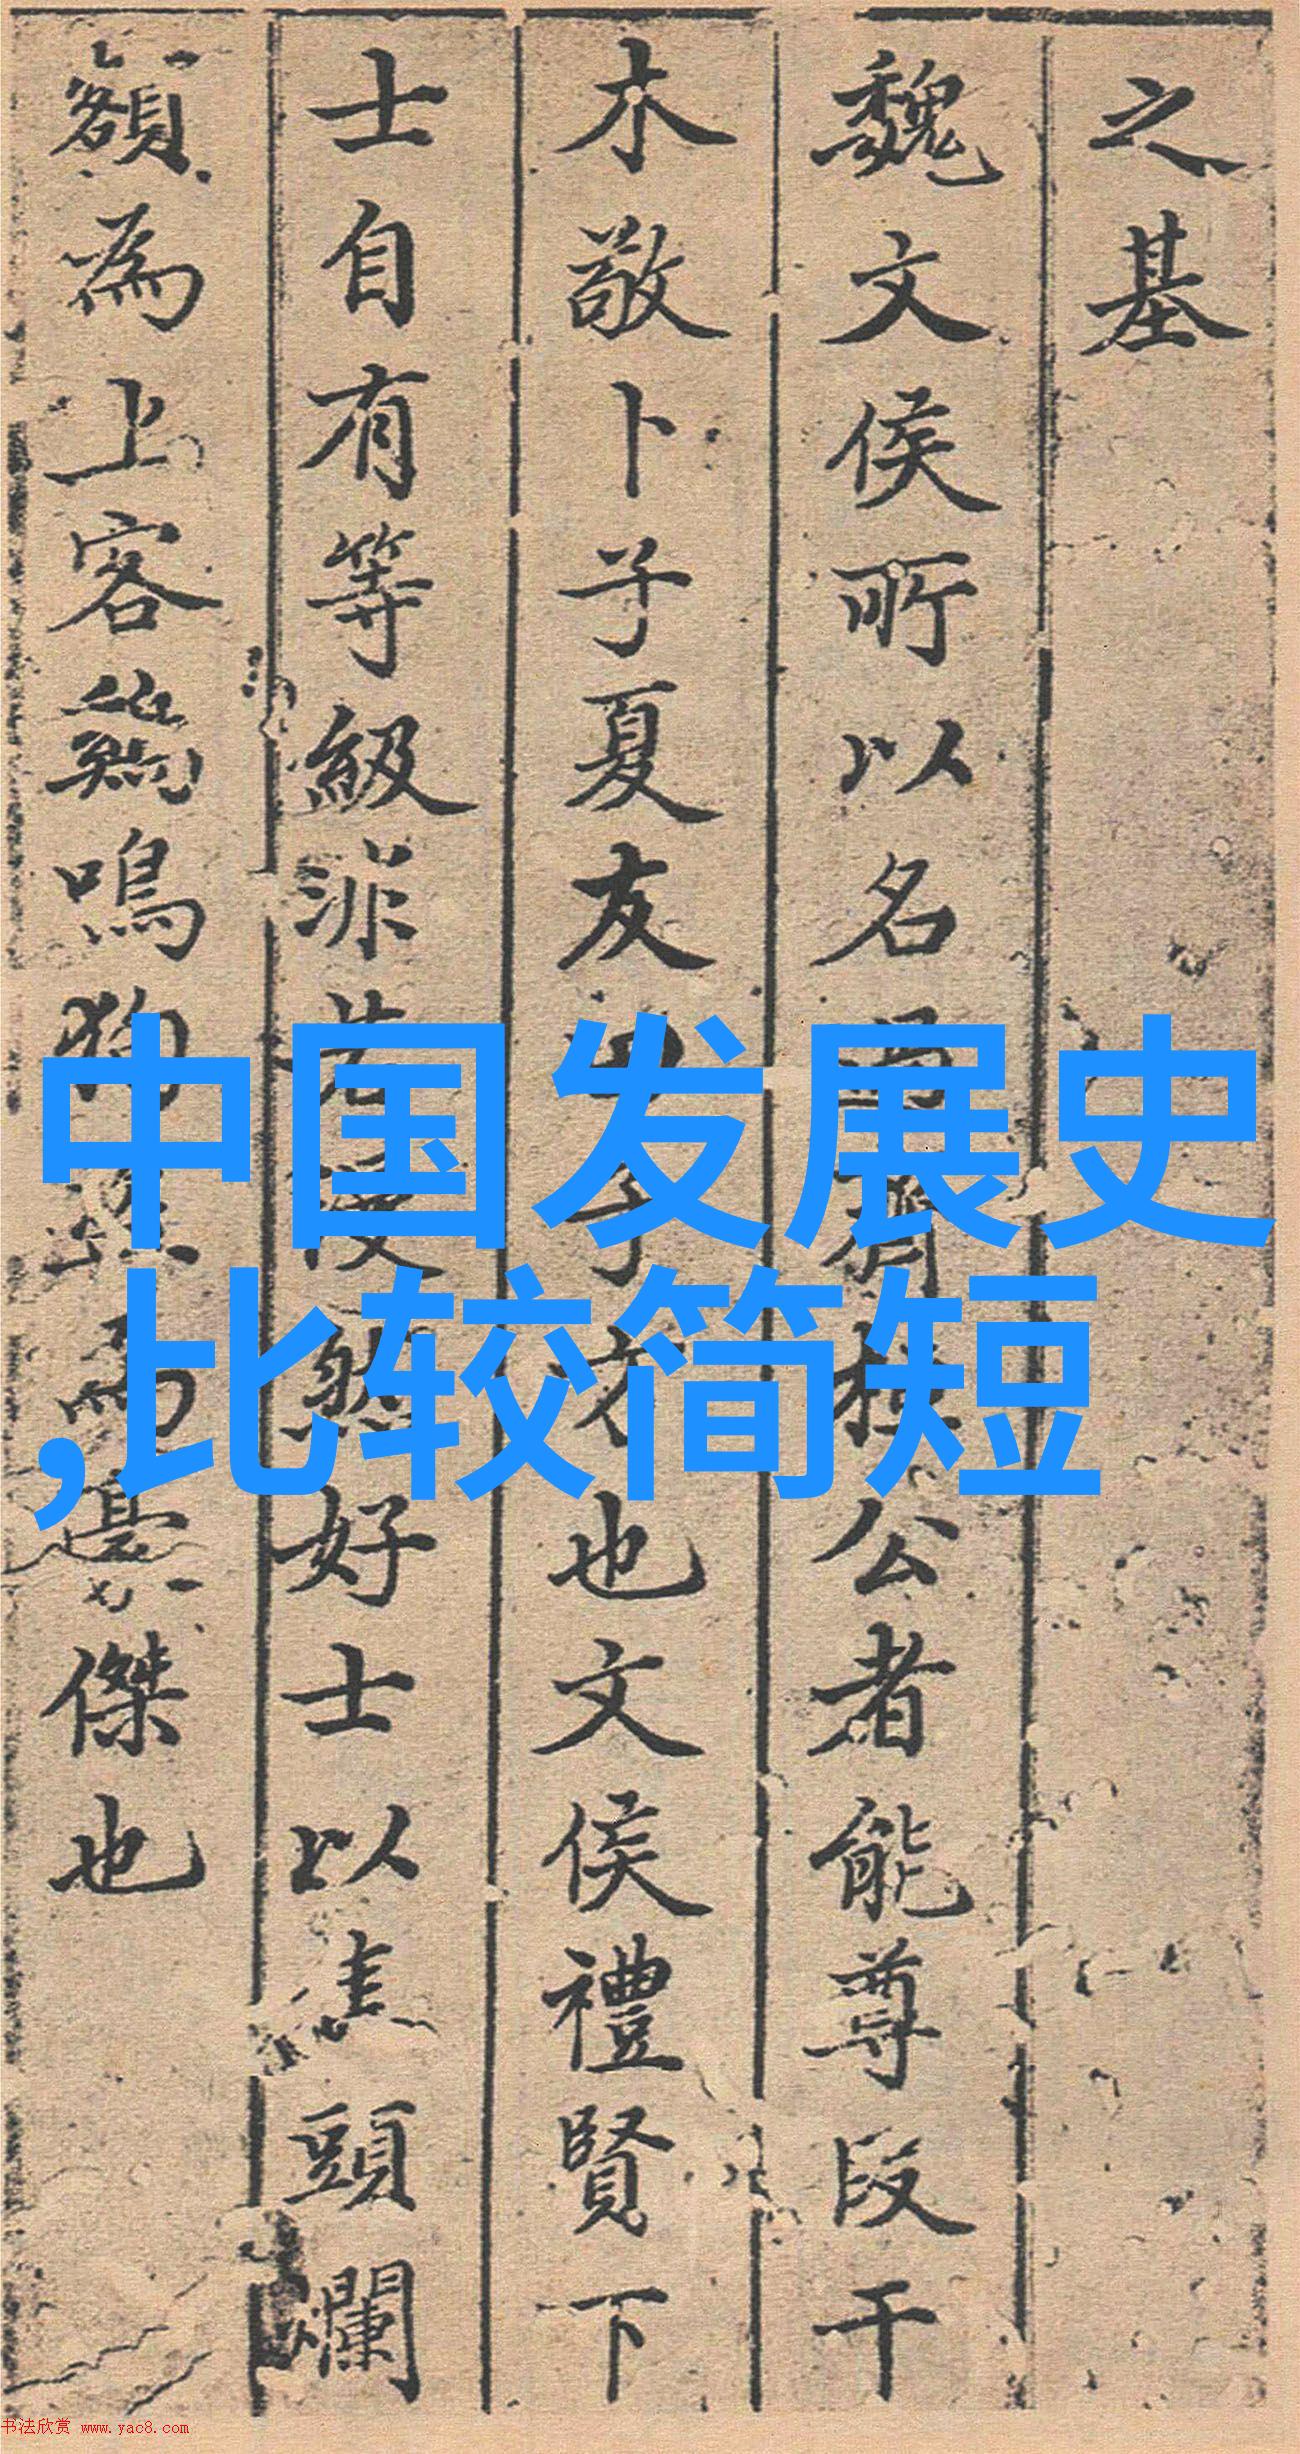 之基
魏文侯所以名過齊桓公者能尊段干
木敬卜子夏友田子方也文侯禮賢下
士自有等級非若後然好士以焦頭爛
額為上客鷄鳴狗盜而豪傑也
中国发展史
,比较简短
书法欣赏 www.yac8.com